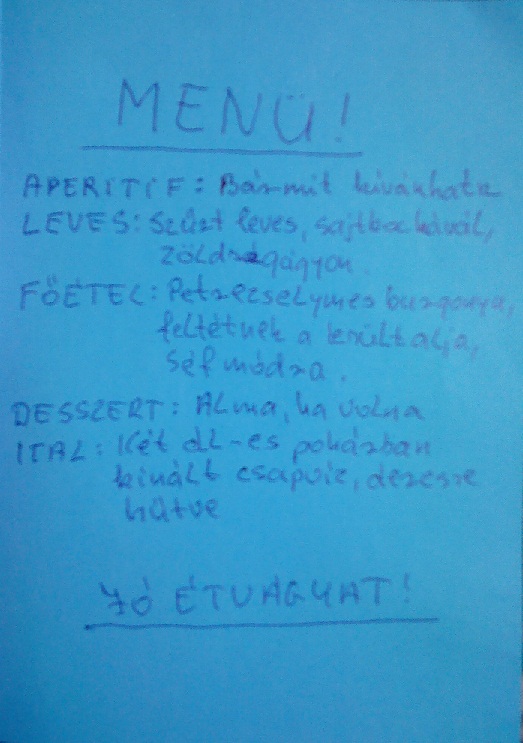 MENÜ!
APERITIF: Bármit kívánhatz
LEVES: Szűzt leves, sajtbockával,
zöldségágyon.
FŐÉTEL: Petrezselymes burgonya,
feltétnek a lesült alja,
séf módra.
DESSZERT: Alma, ha volna
ITAL: Két dl-es pohárban
kínált csapvíz, deresre
hűtve
JÓ ÉTVÁGYAT!